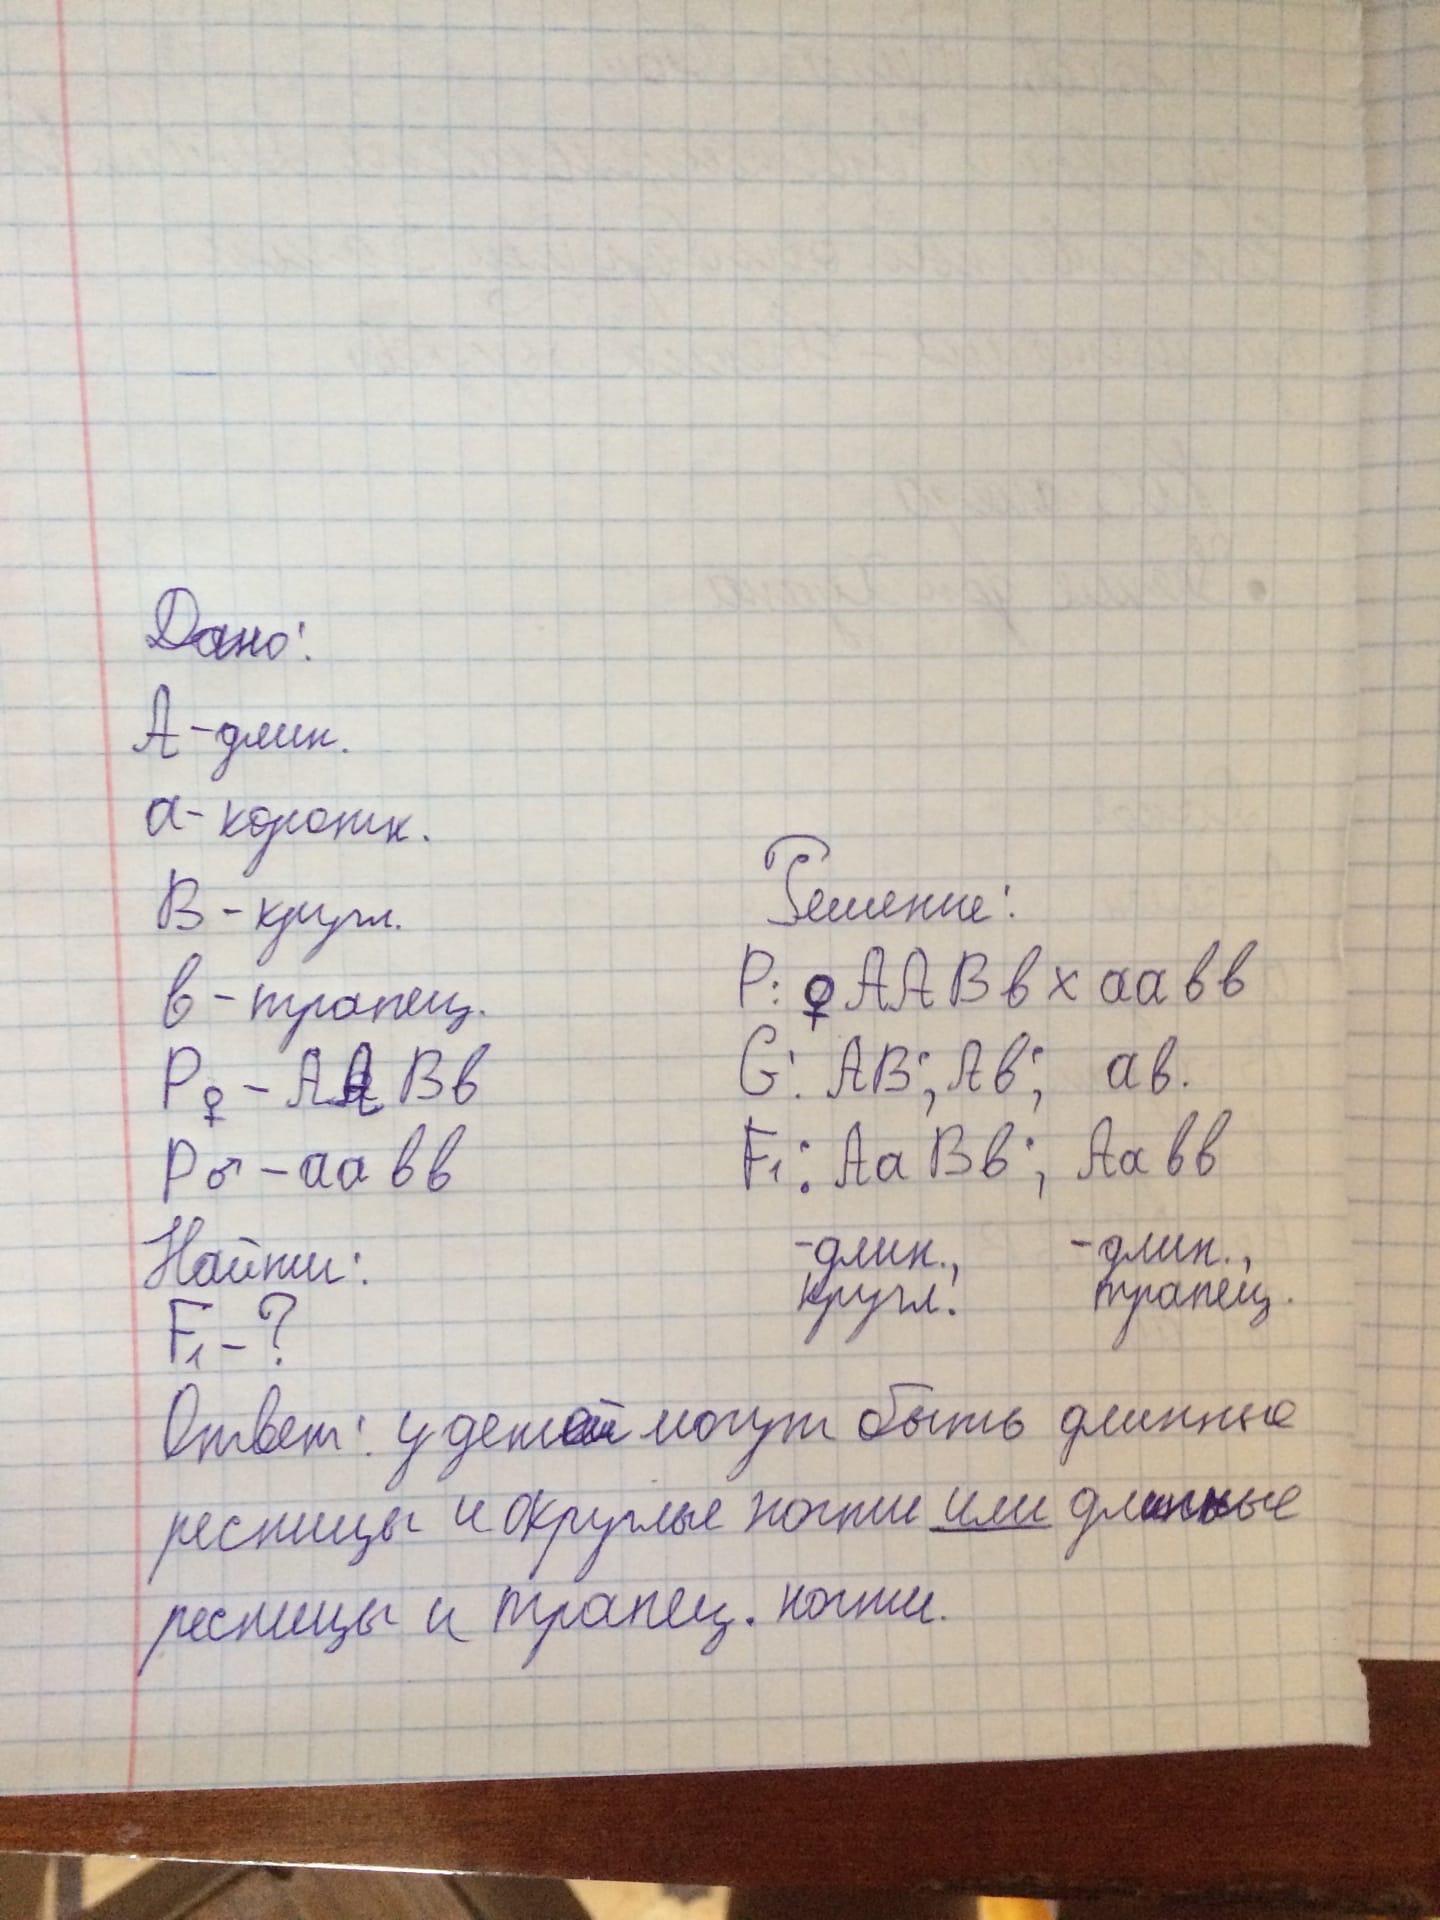 Дано:
А - длин.
а - коротк.
В - кругл.
в - трапец.
Р♀ - АА Вв
Р♂ - аа вв
Найти:
F₁ - ?
Решение:
Р: ♀ААВв х аавв
G: АВ; Ав; ав.
F₁: АаВв; Аавв
- длин., - длин.,
кругл. трапец.
Ответ: у детей могут быть длинные
ресницы и округлые ногти или длинные
ресницы и трапец. ногти.